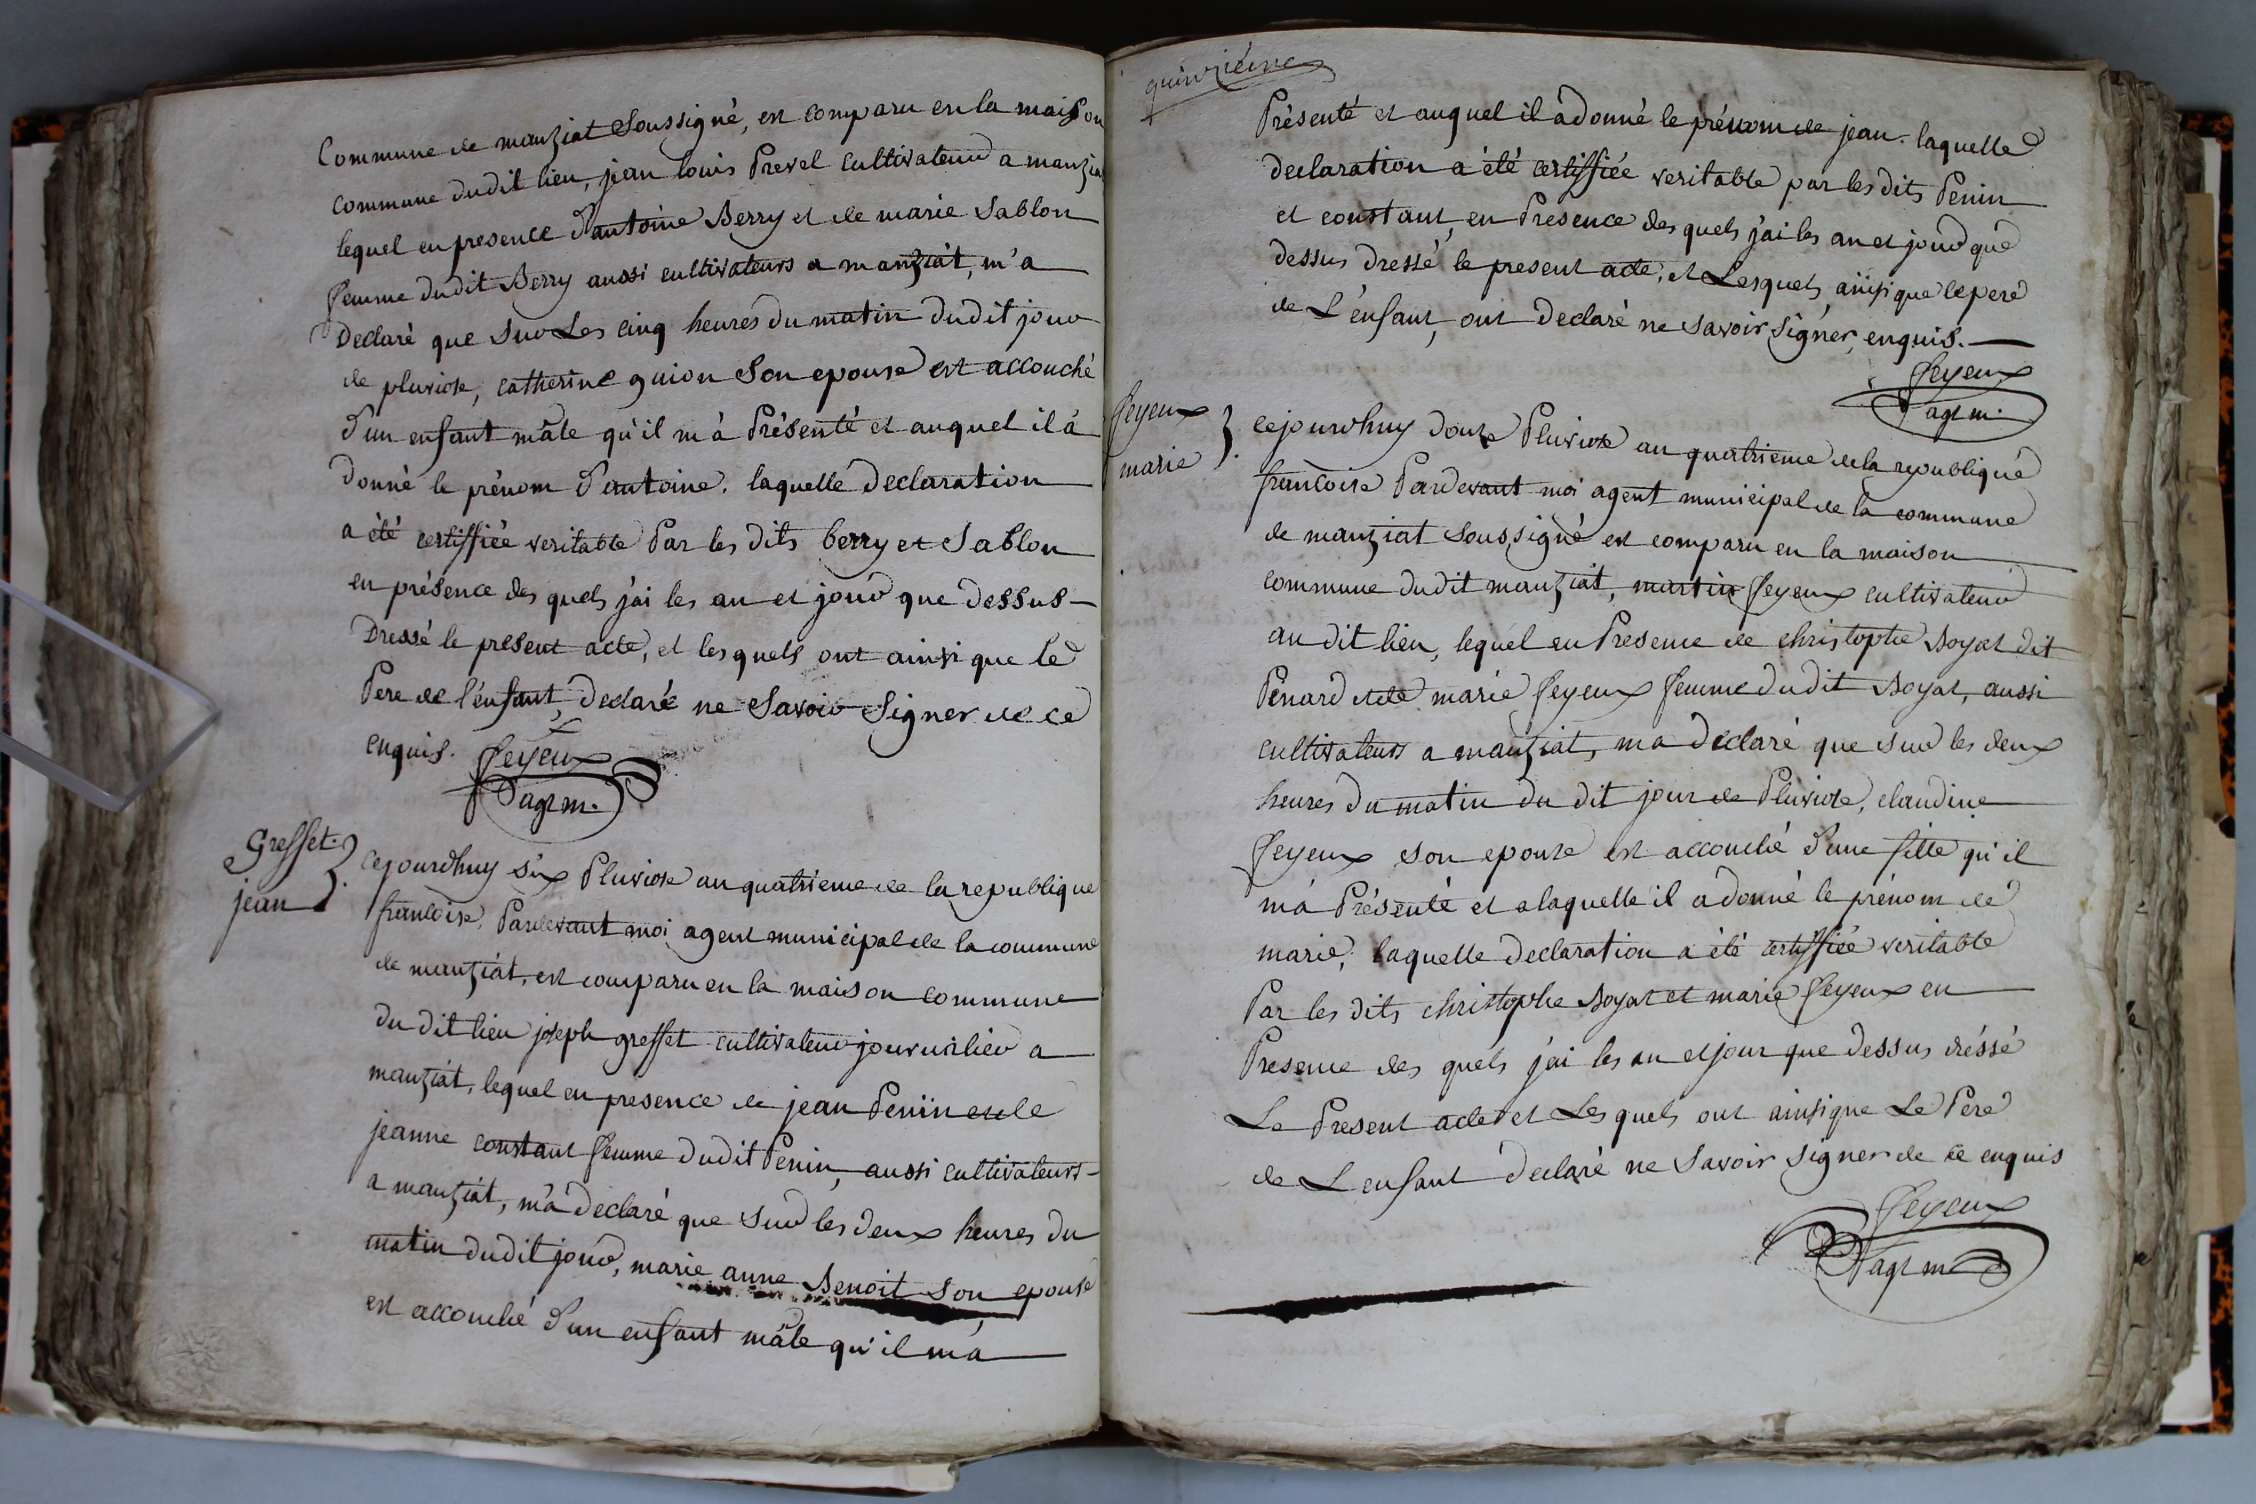 Commune de manziat Soussigné, est comparu en la maison
commune dudit lieu, jean louis Prevel cultivateur a manziat
lequel en presence d'antoine Berry et de marie Sablon
femme dudit Berry aussi cultivateurs a manziat, m'a
Declaré que sur Les cinq heures du matin dudit jour
de pluviose, catherine guion Son epouse est accouché
d'un enfant mâle qu'il m'à Présenté et auquel il à
donné le prénom d'antoine. laquelle declaration
a été certiffiée veritable Par les dits berry et Sablon
en présence des quels j'ai les an et jour que dessus
Dressé le present acte, et lesquels ont ainsi que le
Pere de l'enfant, declaré ne Savoir Signer de ce
enquis. feyeux
agt m.
Greffet
jean
cejourdhuy Six Pluviose an quatrieme de la republique
francoise, Pardevant moi agent municipal de la commune
de manziat, est comparu en la maison commune
du dit lieu joseph greffet cultivateur journalier a
manziat, lequel en presence de jean Penin et de
jeanne constant femme dudit Penin, aussi cultivateurs
a manziat, m'à declaré que sur les deux heures du
matin dudit jour, marie anne Benoit son epouse
est accouché d'un enfant mâle qu'il m'à
quinzième
Présenté et auquel il à donné le prénom de jean. laquelle
declaration a été certiffiée veritable par les dits Penin
et constant, en Presence des quels j'ai les an et jour que
dessus dressé le present acte, et Lesquels, ainsi que le pere
de L'énfant, ont declaré ne savoir signer, enquis.
feyeux
agt m.
feyeux
marie
cejourdhuy douze Pluviose an quatrieme de la republique
francoise Pardevant moi agent municipal de la commune
de manziat soussigné est comparu en la maison
commune dudit manziat, martin feyeux cultivateur
au dit lieu, lequel en Presence de christophe Boyat dit
Penard et de marie feyeux femme dudit Boyat, aussi
cultivateurs a manziat, m'a declaré que sur les deux
heures du matin du dit jour de Pluviose, claudine
feyeux son epouse est accouché d'une fille qu'il
m'à Présenté et a laquelle il a donné le prénom de
marie, laquelle declaration a été certiffiée veritable
Par les dits christophe Boyat et marie feyeux en
Presence des quels j'ai les an et jour que dessus dréssé
Le Present acte et Lesquels ont ainsi que Le Pere
de L'enfant declaré ne savoir signer de ce enquis
feyeux
agt m